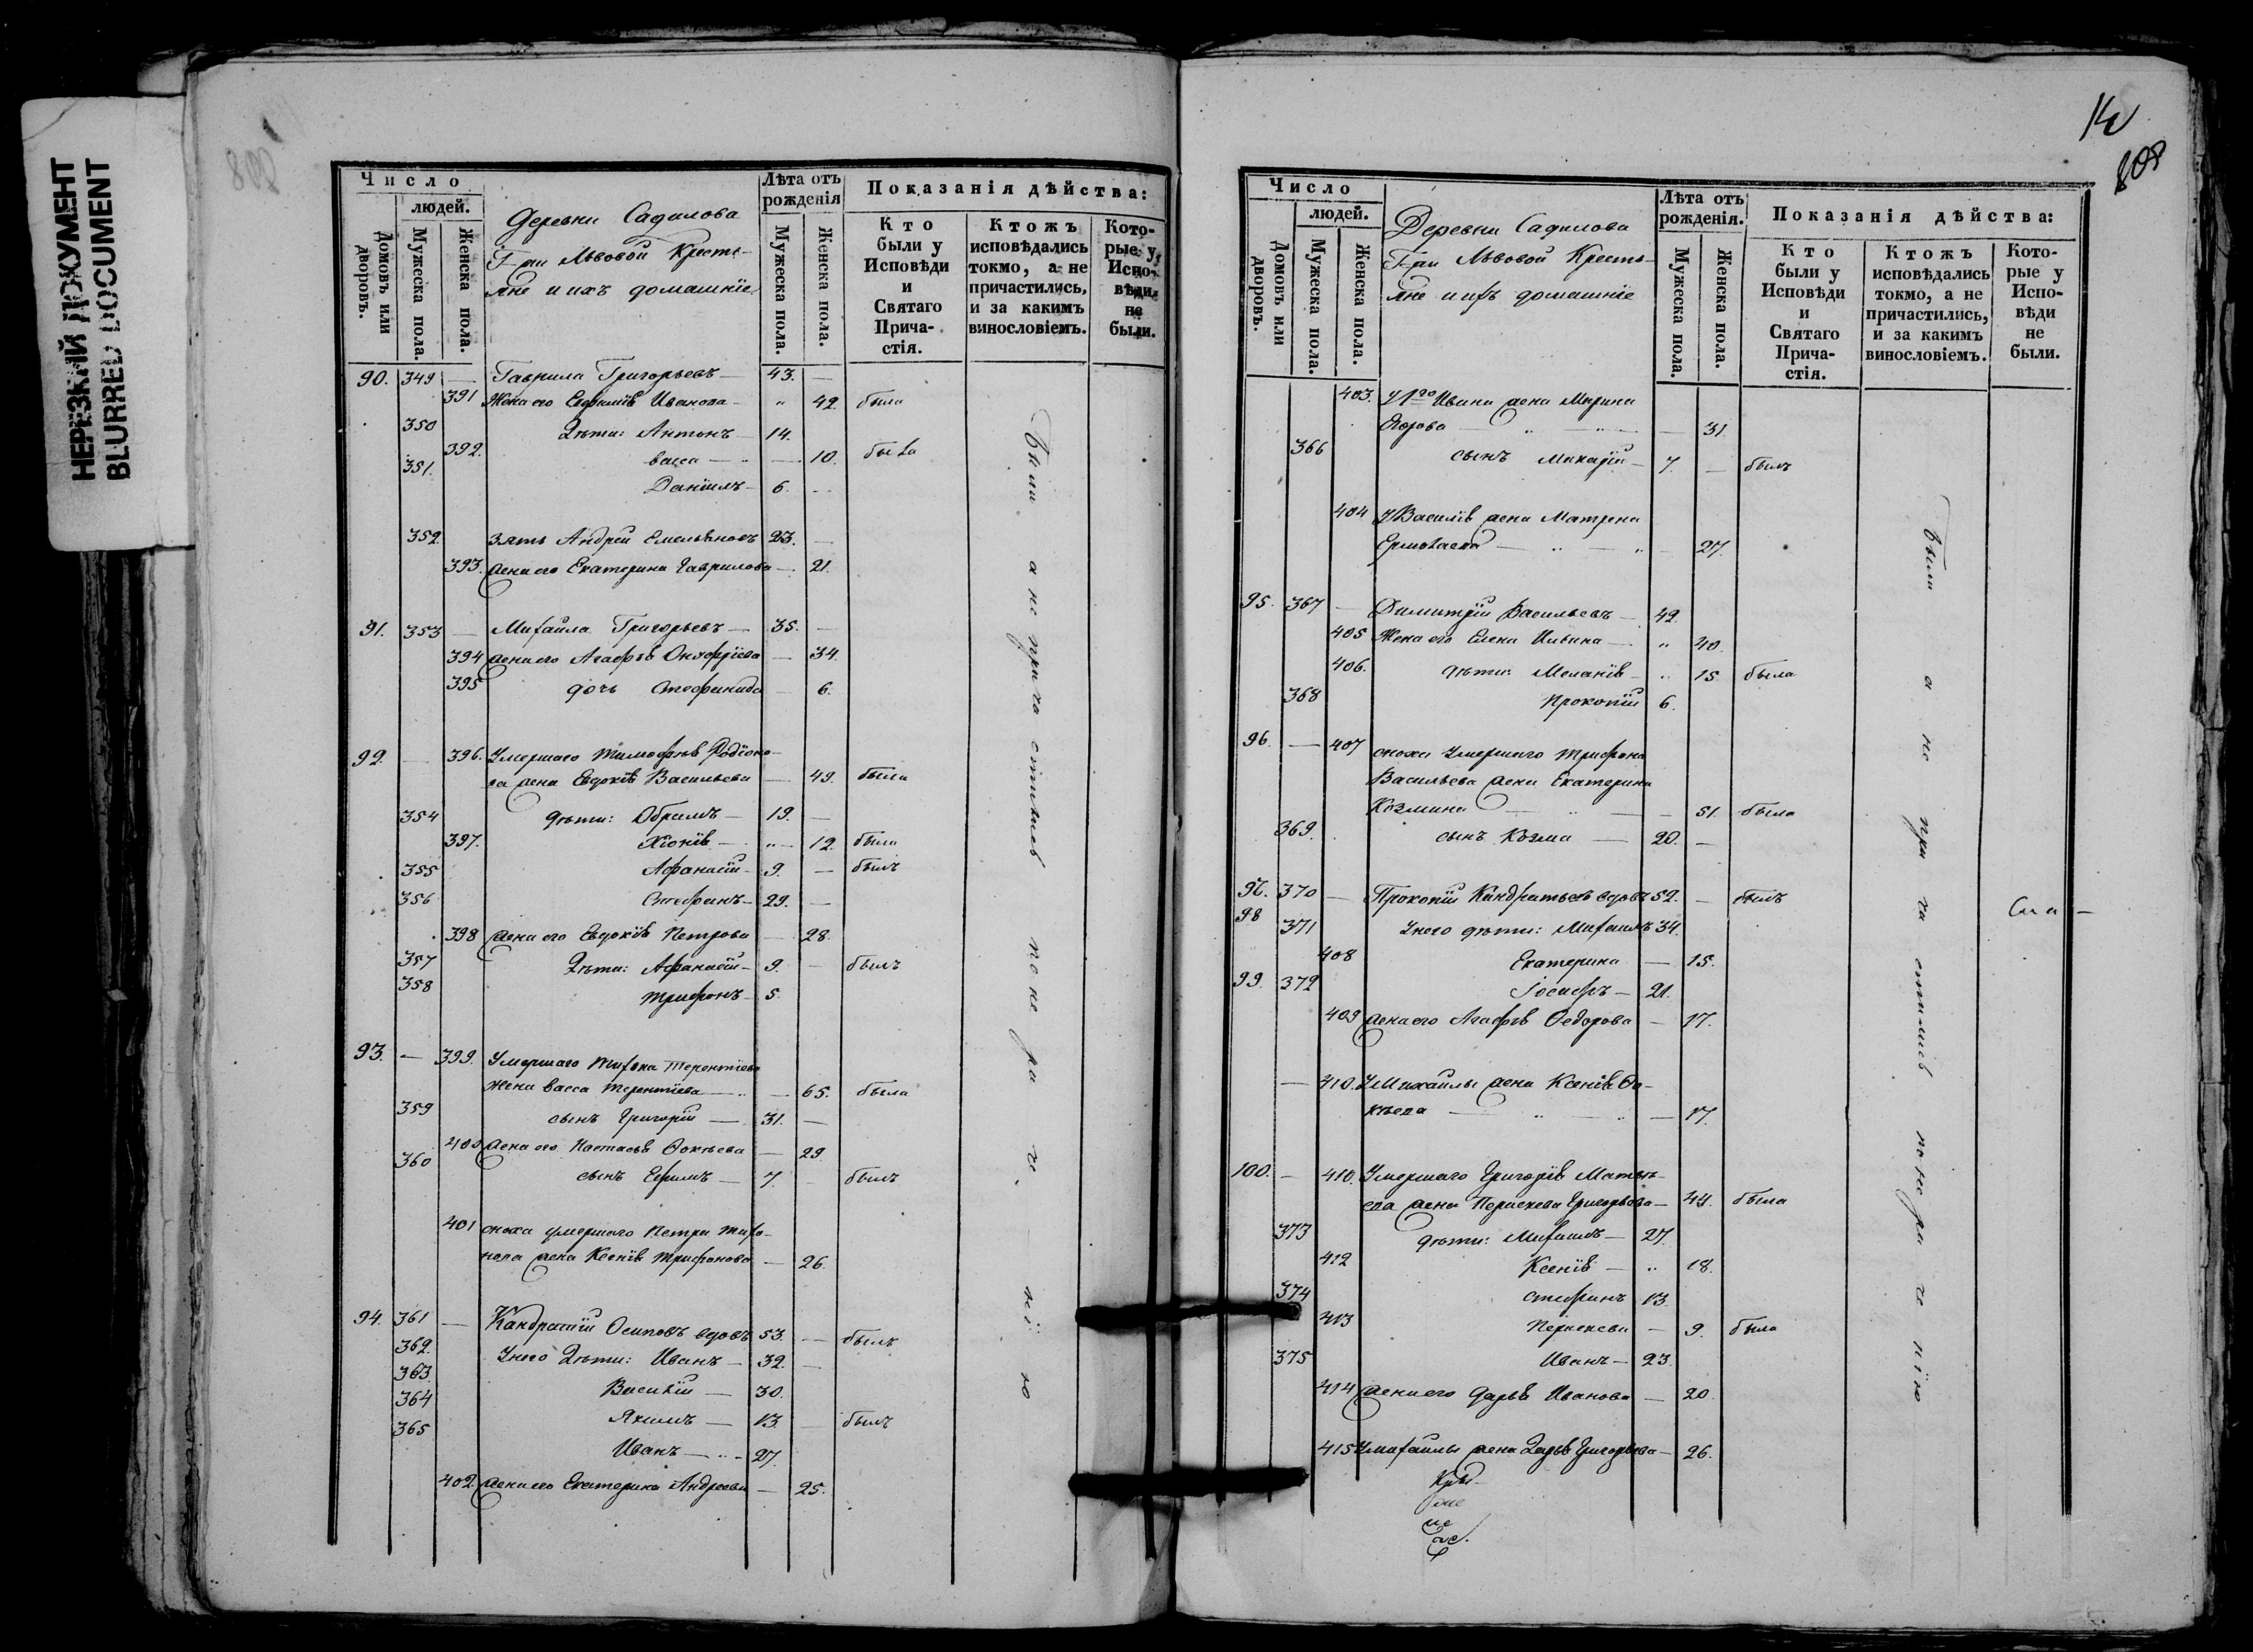 НЕРЕЗКИЙ ДОКУМЕНТ
BLURRED DOCUMENT
Число
людей.
Домовъ или дворовъ.
Мужеска пола.
Женска пола.
Деревни Садилова
Г-жи Львовой Кресть-
яне и ихъ домашніе
Лѣта отъ рожденія
Мужеска пола.
Женска пола.
Показанія дѣйства:
Кто были у Исповѣди и Святаго Прича-стія.
Ктожъ исповѣдались токмо, а не причастились, и за какимъ винословіемъ.
Кото-рые у Испо-вѣди не были.
90. 349 — Гаврила Григорьевъ — 43. —
391 Жена его Евфимія Иванова — „ 42. была
350 Дѣти: Антонъ — 14.
392. Васса — 10. была
351. Даніилъ — 6.
352. Зять Андрей Емельяновъ 23. —
393. Жена его Екатерина Гаврилова — 21.
91. 353 — Михайла Григорьевъ — 35. —
394 жена его Агафья Онуфріева — 34.
395 дочь Стефанида — 6.
92. — 396. Умершаго Тимофея Родіоно-
ва жена Евдокія Васильева — 49. была
354 дѣти: Абрамъ — 19. —
397. Хіонія — „ 12. была
355 Афанасій — 9. — былъ
356 Стефанъ — 29. —
398 жена его Евдокія Петрова — 28.
357 Дѣти: Афанасій — 9. — былъ
358 Трифонъ — 5.
93. — 399. Умершаго Тихона Терентіева
жена Васса Терентіева — 65. была
359 сынъ Григорій — 31. —
400 жена его Настасья Фокѣева — 29.
360 сынъ Ефимъ — 7. былъ
401 сноха умершаго Петра Тихо-
нова жена Ксенія Трифонова — 26.
94. 361 — Кандратій Осиповъ вдовъ 53. — былъ
362. У него Дѣти: Иванъ — 32. —
363. Василій — 30.
364
365 Якимъ — 13. — былъ
Иванъ — 27.
402. жена его Екатерина Андреева — 25.
Были а не причастились по нераченію
808
Число
людей.
Домовъ или дворовъ.
Мужеска пола.
Женска пола.
Деревни Садилова
Г-жи Львовой Кресть-
яне и ихъ домашніе
Лѣта отъ рожденія.
Мужеска пола.
Женска пола.
Показанія дѣйства:
Кто были у Исповѣди и Святаго Прича-стія.
Ктожъ исповѣдались токмо, а не причастились, и за какимъ винословіемъ.
Кото-рые у Испо-вѣди не были.
403. У 1го Ивана жена Марина
Егорова — 31.
366 сынъ — 7. — былъ
404 У Василія жена Матрена
Ермолаева — 27.
95. 367 — Димитрій Васильевъ — 42.
405 Жена его Елена Ильина — „ 40.
406. дѣти: Меланія — „ 15. была
368 Прокопій 6.
96. — 407 сноха Умершаго Трифона
Васильева жена Екатерина
Козмина — 51. была
369. сынъ Козма — 20. —
370 — Прокопій Кандратьевъ вдовъ 52. — былъ
98 371 У него дѣти: Михаилъ 34.
408 Екатерина — 15.
99. 372 Іосифъ — 21.
409 жена его Агафья Федорова — 17.
— 410. У Михайлы жена Ксенія Фо-
кѣева — 17.
100. — 410. Умершаго Григорія Матвѣ-
ева жена Параскева Григорьева — 44. была
373 дѣти: Михаилъ — 27.
412 Ксенія — „ 18.
374 Стефанъ 13.
413 Параскева — 9. была
375 Иванъ — 23.
414 жена его Дарья Иванова — 20.
415 У Михайлы жена Дарья Григорьева — 26.
Были а не причастились по нераченію